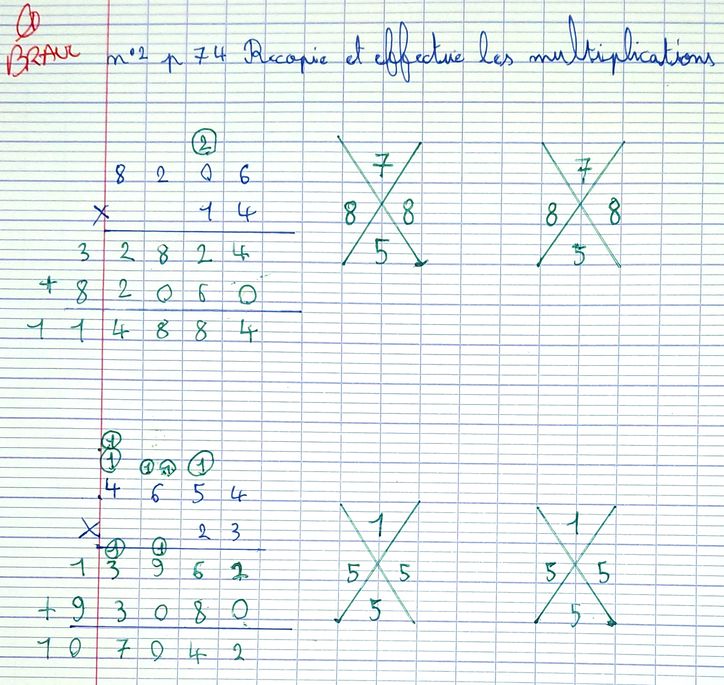 ①
BRAVO
n°2 p 74 Recopie et effectue les multiplications
②
8 2 0 6
x 1 4
3 2 8 2 4
+ 8 2 0 6 0
1 1 4 8 8 4
7
8 8
5
7
8 8
5
①
① ① ① ①
4 6 5 4
x 2 3
① ①
1 3 9 6 2
+ 9 3 0 8 0
1 0 7 0 4 2
1
5 5
5
1
5 5
5